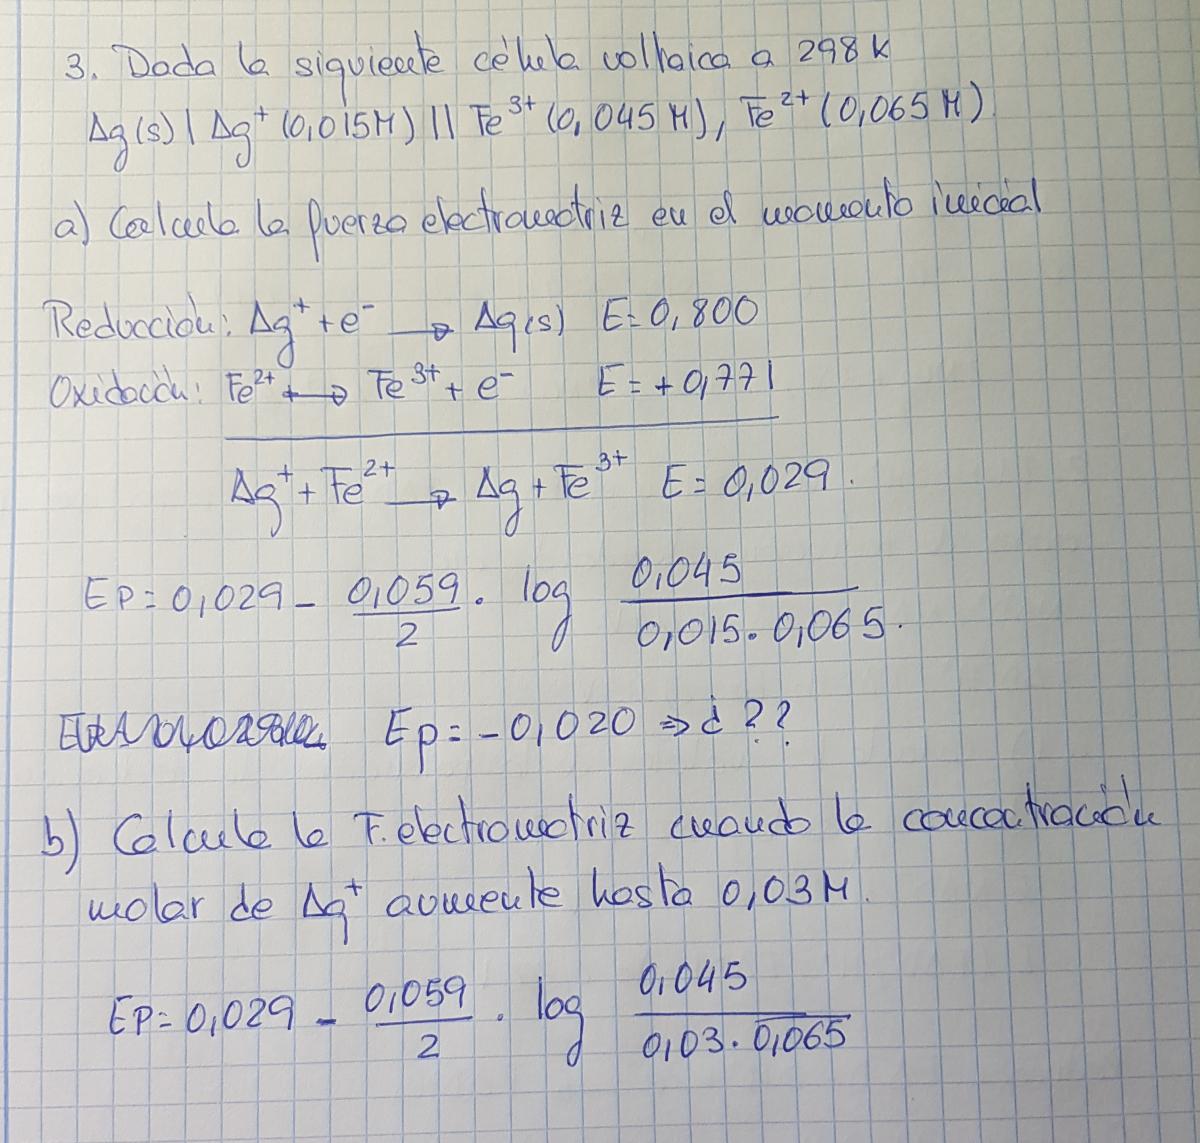 3. Dada la siguiente célula voltaica a 298 K
Ag(s) | Ag⁺ (0,015M) || Fe³⁺ (0,045 M), Fe²⁺ (0,065 M)
a) Calcula la fuerza electromotriz en el momento inicial
Reducción: Ag⁺ + e⁻ → Ag(s) E = 0,800
Oxidación: Fe²⁺ → Fe³⁺ + e⁻ E = +0,771
Ag⁺ + Fe²⁺ → Ag + Fe³⁺ E = 0,029.
Ep = 0,029 - 0,059/2 · log 0,045/0,015 · 0,065.
Ep = -0,020 ⇒ ¿??
b) Calcule la F. electromotriz cuando la concentración
molar de Ag⁺ aumente hasta 0,03 M.
Ep = 0,029 - 0,059/2 · log 0,045/0,03 · 0,065